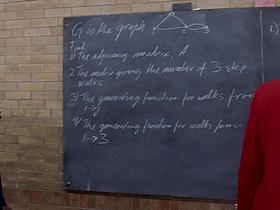 G is the graph
Find
1) The adjacency matrix, A
2 The matrix giving the number of 3 step
walks
3) The generating function for walks from
1→1
4) The generating function for walks from
1→3
1)